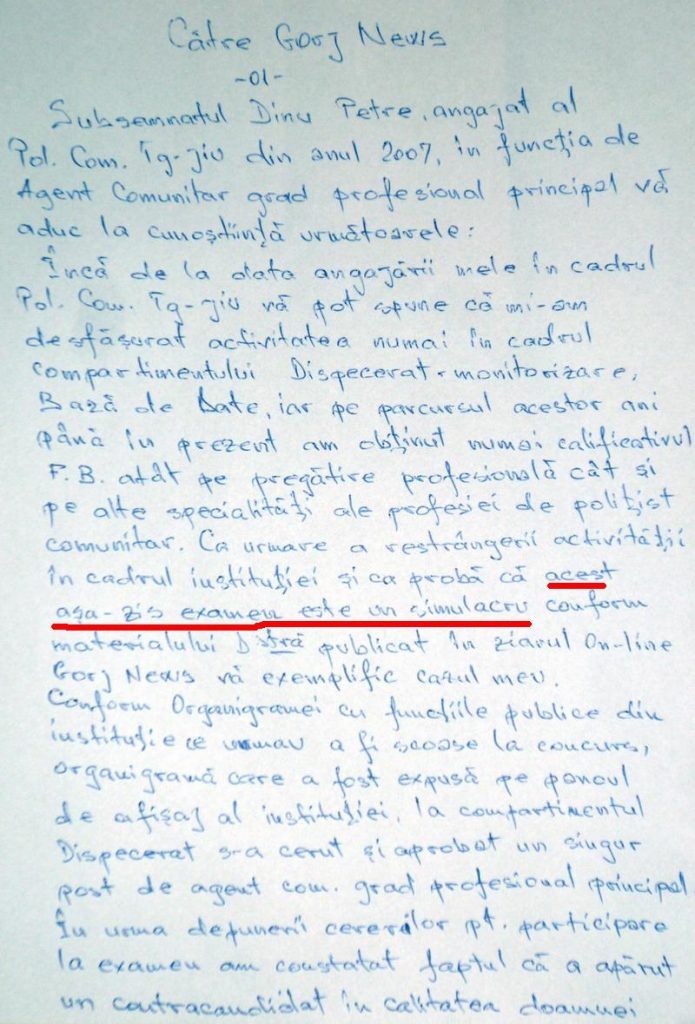 Către Gorj News
-01-
Subsemnatul Dinu Petre, angajat al
Pol. Com. Tg-Jiu din anul 2007, în funcția de
Agent Comunitar grad profesional principal vă
aduc la cunoștiință următoarele:
Încă de la data angajării mele în cadrul
Pol. Com. Tg-Jiu vă pot spune că mi-am
desfășurat activitatea numai în cadrul
compartimentului Dispecerat-monitorizare,
Bază de Date, iar pe parcursul acestor ani
până în prezent am obținut numai calificativul
F.B. atât pe pregătire profesională cât și
pe alte specialități ale profesiei de polițist
comunitar. Ca urmare a restrângerii activității
în cadrul instituției și ca probă că acest
așa-zis examen este un simulacru conform
materialului Dstră publicat în ziarul On-line
Gorj News vă exemplific cazul meu.
Conform Organigramei cu funcțiile publice din
instituție ce urmau a fi scoase la concurs,
organigramă care a fost expusă pe panoul
de afișaj al instituției, la compartimentul
Dispecerat s-a cerut și aprobat un singur
post de agent com. grad profesional principal
În urma depunerii cererilor pt. participare
la examen am constatat faptul că a apărut
un contracandidat în calitatea doamnei